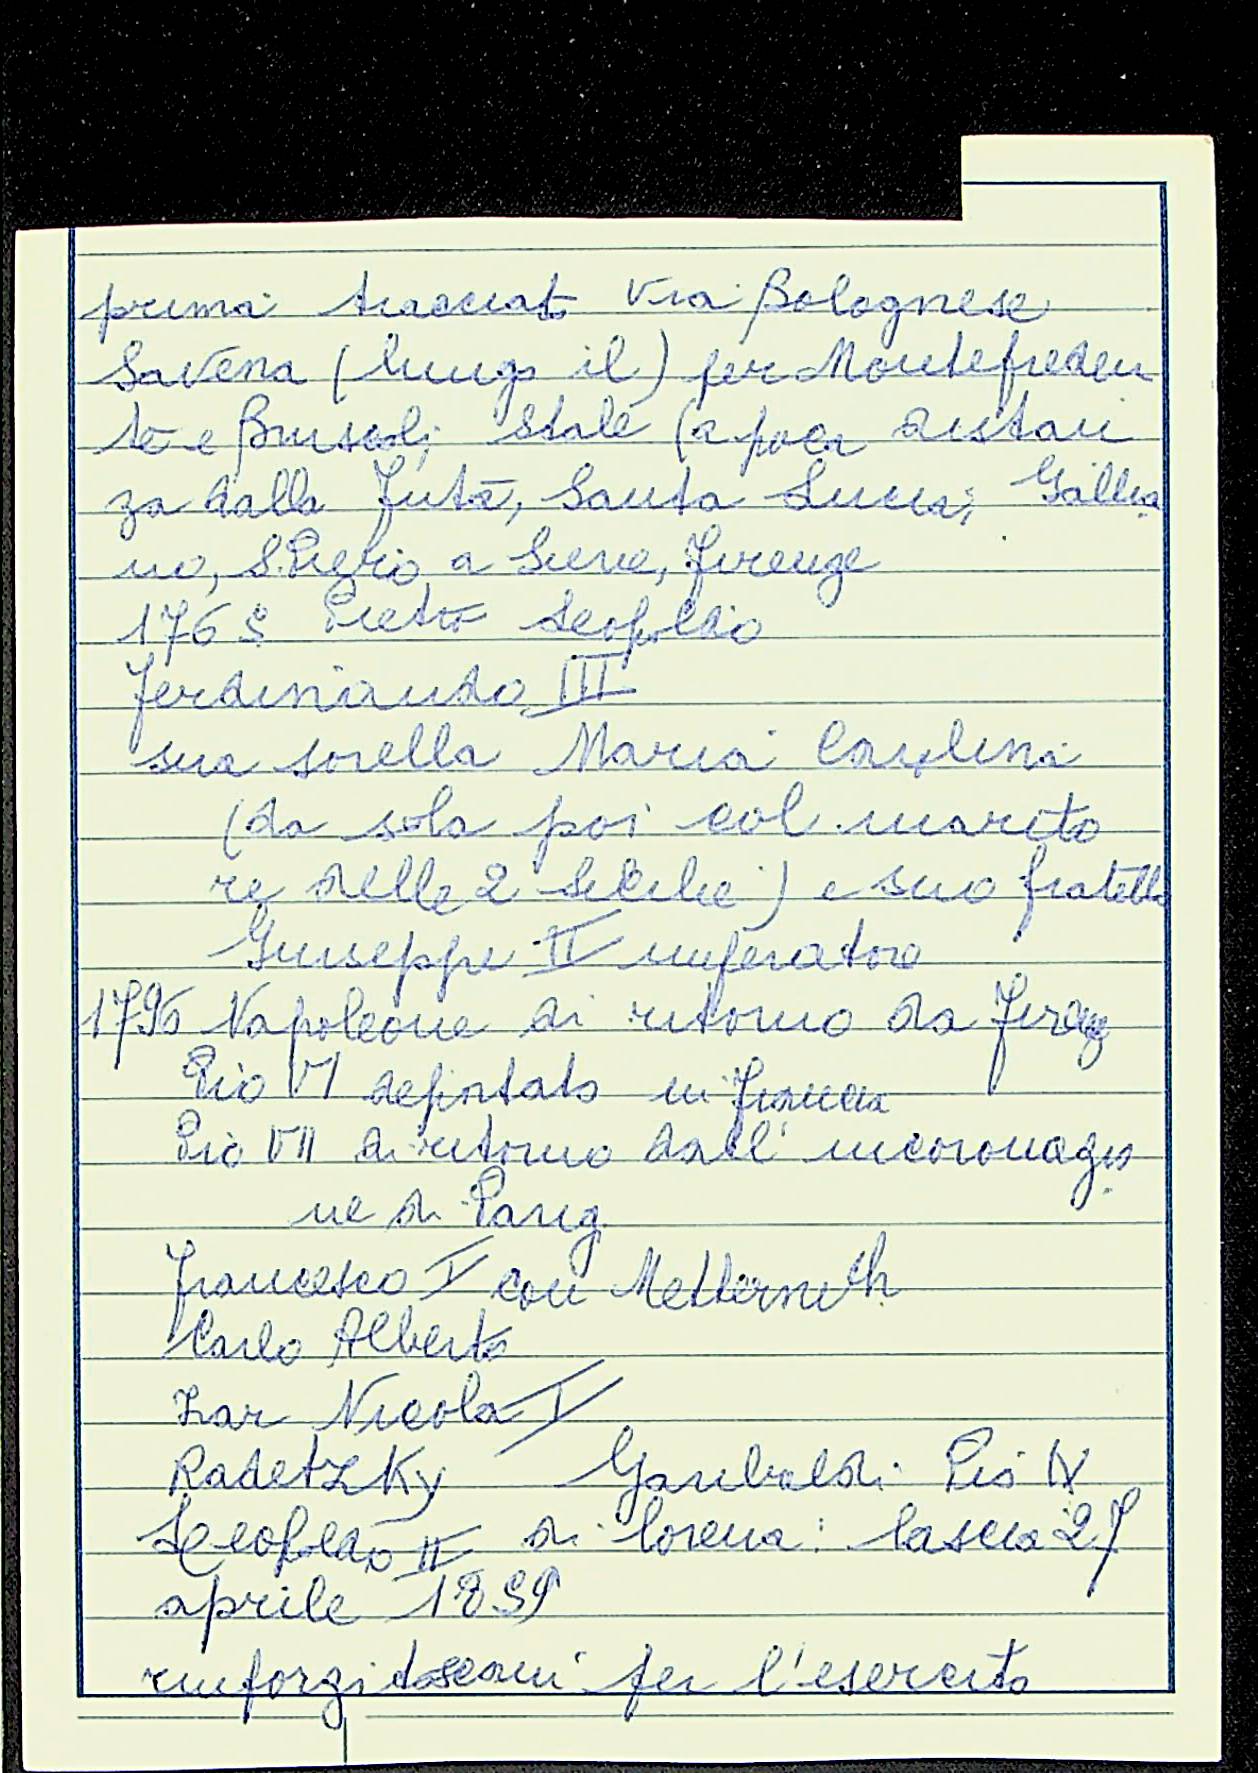 prima tracciat Via Bolognese
Savena (lungo il) per Montefreden
te e Bruscoli; Stale (a poca distan
za dalla Futa, Santa Lucia; Gallia
no, S. Piero a Sieve, Firenze
1765 Pietro Leopoldo
Ferdinando III
sua sorella Maria Carolina
(da sola poi col marito
re delle 2 Sicilie) e suo fratello
Giuseppe II imperatore
1796 Napoleone di ritorno da Firenz
Pio VI deportato in Francia
Pio VII di ritorno dall'incoronazio
ne di Parig
Francesco I con Metternich
Carlo Alberto
Zar Nicola I
Radetzky Garibaldi Pio IX
Leopoldo II di Lorena: lascia 27
aprile 1859
rinforzi toscani per l'esercito